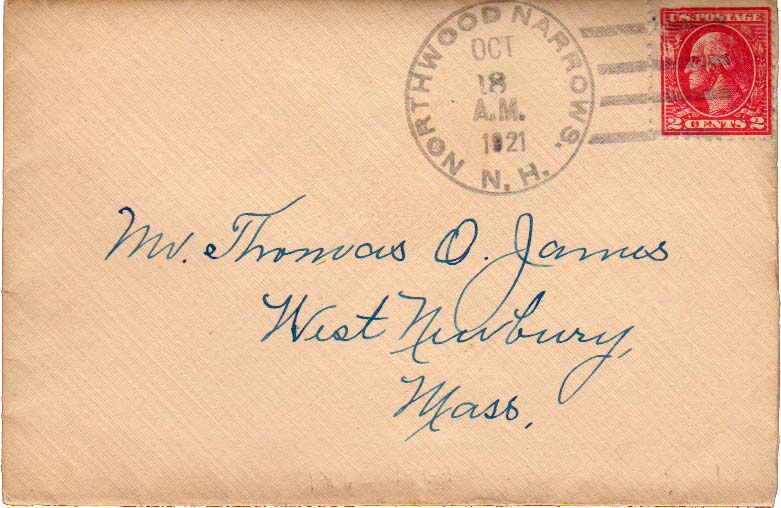 NORTHWOOD NARROWS, N.H.
OCT
18
A.M.
1921
U.S. POSTAGE
2 CENTS 2
Mr. Thomas O. James
West Newbury,
Mass,